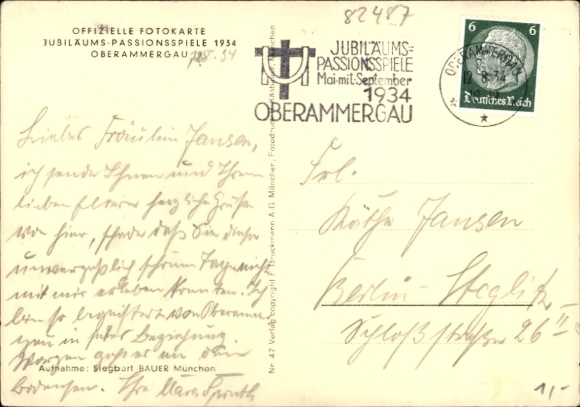 82487
OFFIZIELLE FOTOKARTE
JUBILÄUMS-PASSIONSSPIELE 1934
OBERAMMERGAU
JUBILÄUMS=
PASSIONSSPIELE
Mai mit September
1934
OBERAMMERGAU
OBERAMMERGAU
12.8.34
6 6
Deutsches Reich
Liebes Fräulein Jansen,
ich sende Ihnen und Ihren
lieben Eltern herzliche Grüße
von hier, schade daß Sie diese
unvergeßlich schönen Tage nicht
mit mir erleben konnten. Ich
bin so begeistert von Oberammer
gau in jeder Beziehung.
Morgen geht es an den
Bodensee. Ihre
Aufnahme: Siegbert BAUER München
Nr. 47 Verlag copyright F. Bruckmann A.G. München, Fotodruck
Frl.
Käthe Jansen
Berlin-Steglitz
Schloßstraße 26 II
1,-